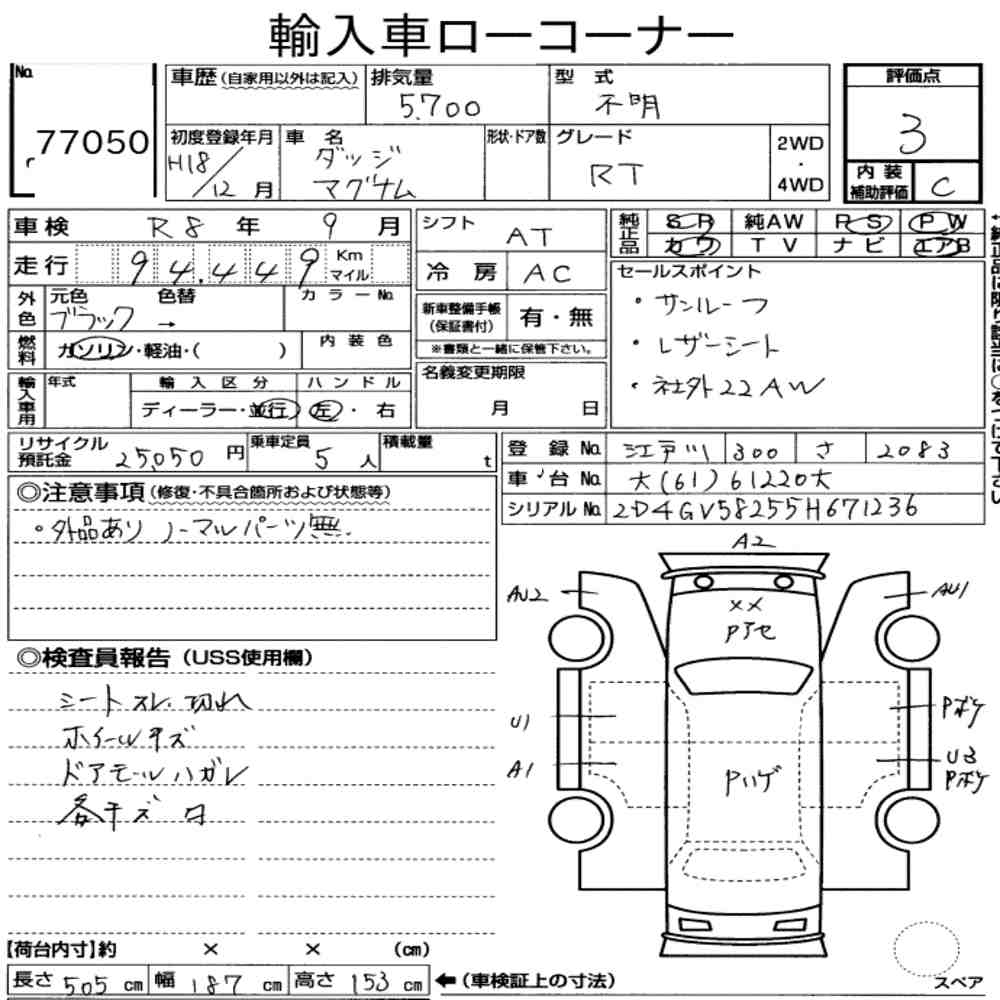 輸入車ローコーナー
No. 77050
車歴 (自家用以外は記入)
排気量 5700
型式 不明
評価点 3
初度登録年月 H18/12月
車名 ダッジ マグナム
形状・ドア数
グレード RT
2WD・4WD
内装補助評価 C
車検 R8年 9月
走行 94,449 Km マイル
シフト AT
冷房 AC
純正品 SR 純AW PS PW
カワ TV ナビ エアB
外色 元色 ブラック → 色替
カラーNo.
燃料 ガソリン・軽油・( )
内装色
新車整備手帳(保証書付) 有・無
※書類と一緒に保管下さい。
セールスポイント
・サンルーフ
・レザーシート
・社外22AW
輸入車用 年式
輸入区分 ディーラー・並行
ハンドル 左・右
名義変更期限 月 日
リサイクル預託金 25050円
乗車定員 5人
積載量 t
登録No. 江戸川 300 さ 2083
車台No. 大(61)61220大
シリアルNo. 2D4GV58255H671236
◎注意事項 (修復・不具合箇所および状態等)
・外品あり ノーマルパーツ無.
◎検査員報告 (USS使用欄)
シートスレ.切れ
ホイールキズ
ドアモールハガレ
各キズ
A2
AU2
AU1
××
Pアセ
U1
Pボケ
A1
Pハゲ
U3
Pボケ
【荷台内寸】約 × × (cm)
長さ 505 cm 幅 187 cm 高さ 153 cm ←(車検証上の寸法)
スペア